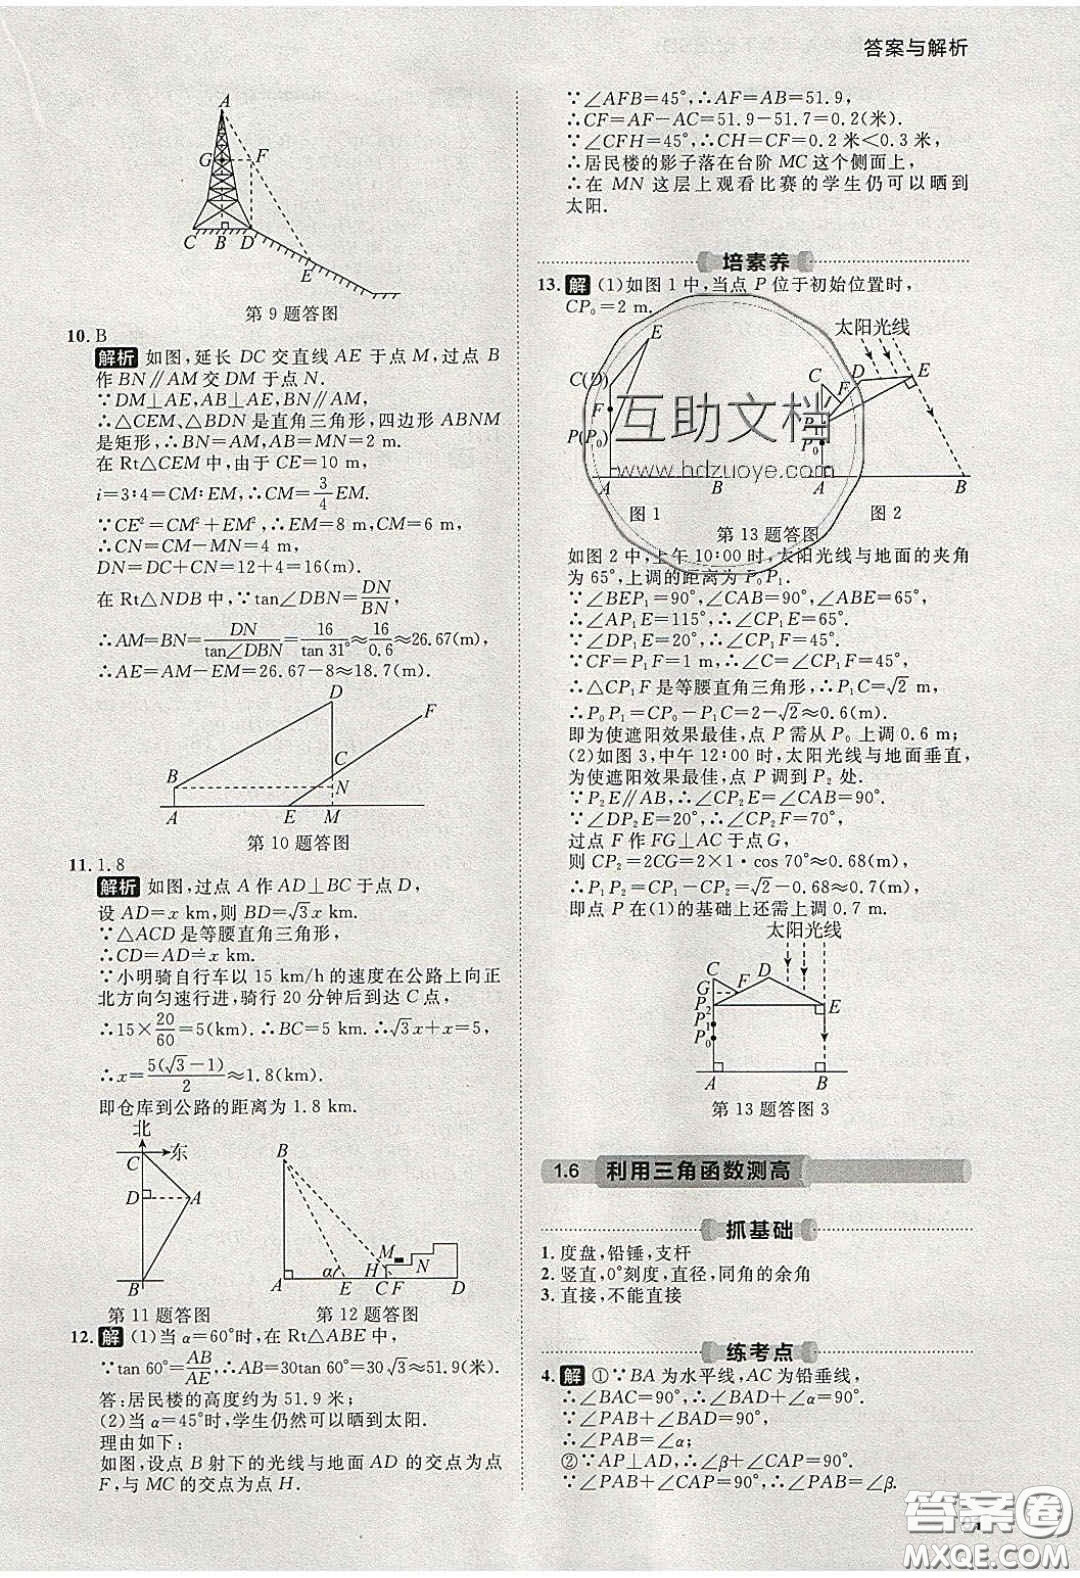 答案与解析
A
G
F
C
B
D
E
第 9 题答图
10. B
解析 如图,延长 DC 交直线 AE 于点 M,过点 B
作 BN∥AM 交 DM 于点 N.
∵DM⊥AE,AB⊥AE,BN∥AM,
∴△CEM、△BDN 是直角三角形,四边形 ABNM
是矩形,∴BN=AM,AB=MN=2 m.
在 Rt△CEM 中,由于 CE=10 m,
i=3∶4=CM∶EM,∴CM=3/4 EM.
∵CE²=CM²+EM²,∴EM=8 m,CM=6 m,
∴CN=CM-MN=4(m),
DN=DC+CN=12+4=16(m).
在 Rt△NDB 中,∵tan∠DBN=DN/BN,
∴AM=BN=DN/tan∠DBN=16/tan 31°≈16/0.6≈26.67(m),
∴AE=AM-EM=26.67-8≈18.7(m).
D
F
B
C
N
A
E
M
第 10 题答图
11. 1.8
解析 如图,过点 A 作 AD⊥BC 于点 D,
设 AD=x km,则 BD=√3x km.
∵△ACD 是等腰直角三角形,
∴CD=AD=x km.
∵小明骑自行车以 15 km/h 的速度在公路上向正
北方向匀速行进,骑行 20 分钟后到达 C 点,
∴15×20/60=5(km). ∴BC=5 km. ∴√3x+x=5,
∴x=5(√3-1)/2≈1.8(km).
即仓库到公路的距离为 1.8 km.
北
C
东
D
A
B
第 11 题答图
B
M
N
α
H
A
E
C F
D
第 12 题答图
12. 解 (1)当 α=60°时,在 Rt△ABE 中,
∵tan 60°=AB/AE,∴AB=30tan 60°=30√3≈51.9(米).
答:居民楼的高度约为 51.9 米;
(2)当 α=45°时,学生仍然可以晒到太阳.
理由如下:
如图,设点 B 射下的光线与地面 AD 的交点为点
F,与 MC 的交点为点 H.
∵∠AFB=45°,∴AF=AB=51.9,
∴CF=AF-AC=51.9-51.7=0.2(米).
∵∠CFH=45°,∴CH=CF=0.2 米<0.3 米,
∴居民楼的影子落在台阶 MC 这个侧面上,
∴在 MN 这层上观看比赛的学生仍可以晒到
太阳.
培素养
13. 解 (1)如图 1 中,当点 P 位于初始位置时,
CP₀=2 m.
E
C(D)
F
P(P₀)
A
B
图 1
太阳光线
C
F
D
E
A
B
图 2
第 13 题答图
互助文档
www.hdzuoye.com
如图 2 中,上午 10∶00 时,太阳光线与地面的夹角
为 65°,上调的距离为 P₀P₁.
∵∠BEP₁=90°,∠CAB=90°,∠ABE=65°,
∴∠AP₁E=115°,∴∠CP₁E=65°.
∵∠DP₁E=20°,∴∠CP₁F=45°.
∵CF=P₁F=1 m,∴∠C=∠CP₁F=45°,
∴△CP₁F 是等腰直角三角形,∴P₁C=√2 m,
∴P₀P₁=CP₀-P₁C=2-√2≈0.6(m),
即为使遮阳效果最佳,点 P 需从 P₀ 上调 0.6 m;
(2)如图 3,中午 12∶00 时,太阳光线与地面垂直,
为使遮阳效果最佳,点 P 调到 P₂ 处.
∵P₂E∥AB,∴∠CP₂E=∠CAB=90°.
∵∠DP₂E=20°,∴∠CP₂F=70°,
过点 F 作 FG⊥AC 于点 G,
则 CP₂=2CG=2×1·cos 70°≈0.68(m),
∴P₁P₂=CP₁-CP₂=√2-0.68≈0.7(m),
即点 P 在(1)的基础上还需上调 0.7 m.
太阳光线
C
D
G
F
P₂
E
P₁
P₀
A
B
第 13 题答图 3
1.6 利用三角函数测高
抓基础
1. 度盘,铅锤,支杆
2. 竖直,0°刻度,直径,同角的余角
3. 直接,不能直接
练考点
4. 解 ①∵BA 为水平线,AC 为铅垂线,
∴∠BAC=90°,∴∠BAD+∠α=90°.
∵∠PAB+∠BAD=90°,
∴∠PAB=∠α;
②∵AP⊥AD,∴∠β+∠CAP=90°.
∵∠PAB+∠CAP=90°,∴∠PAB=∠β.
答案圈
MXQE.COM